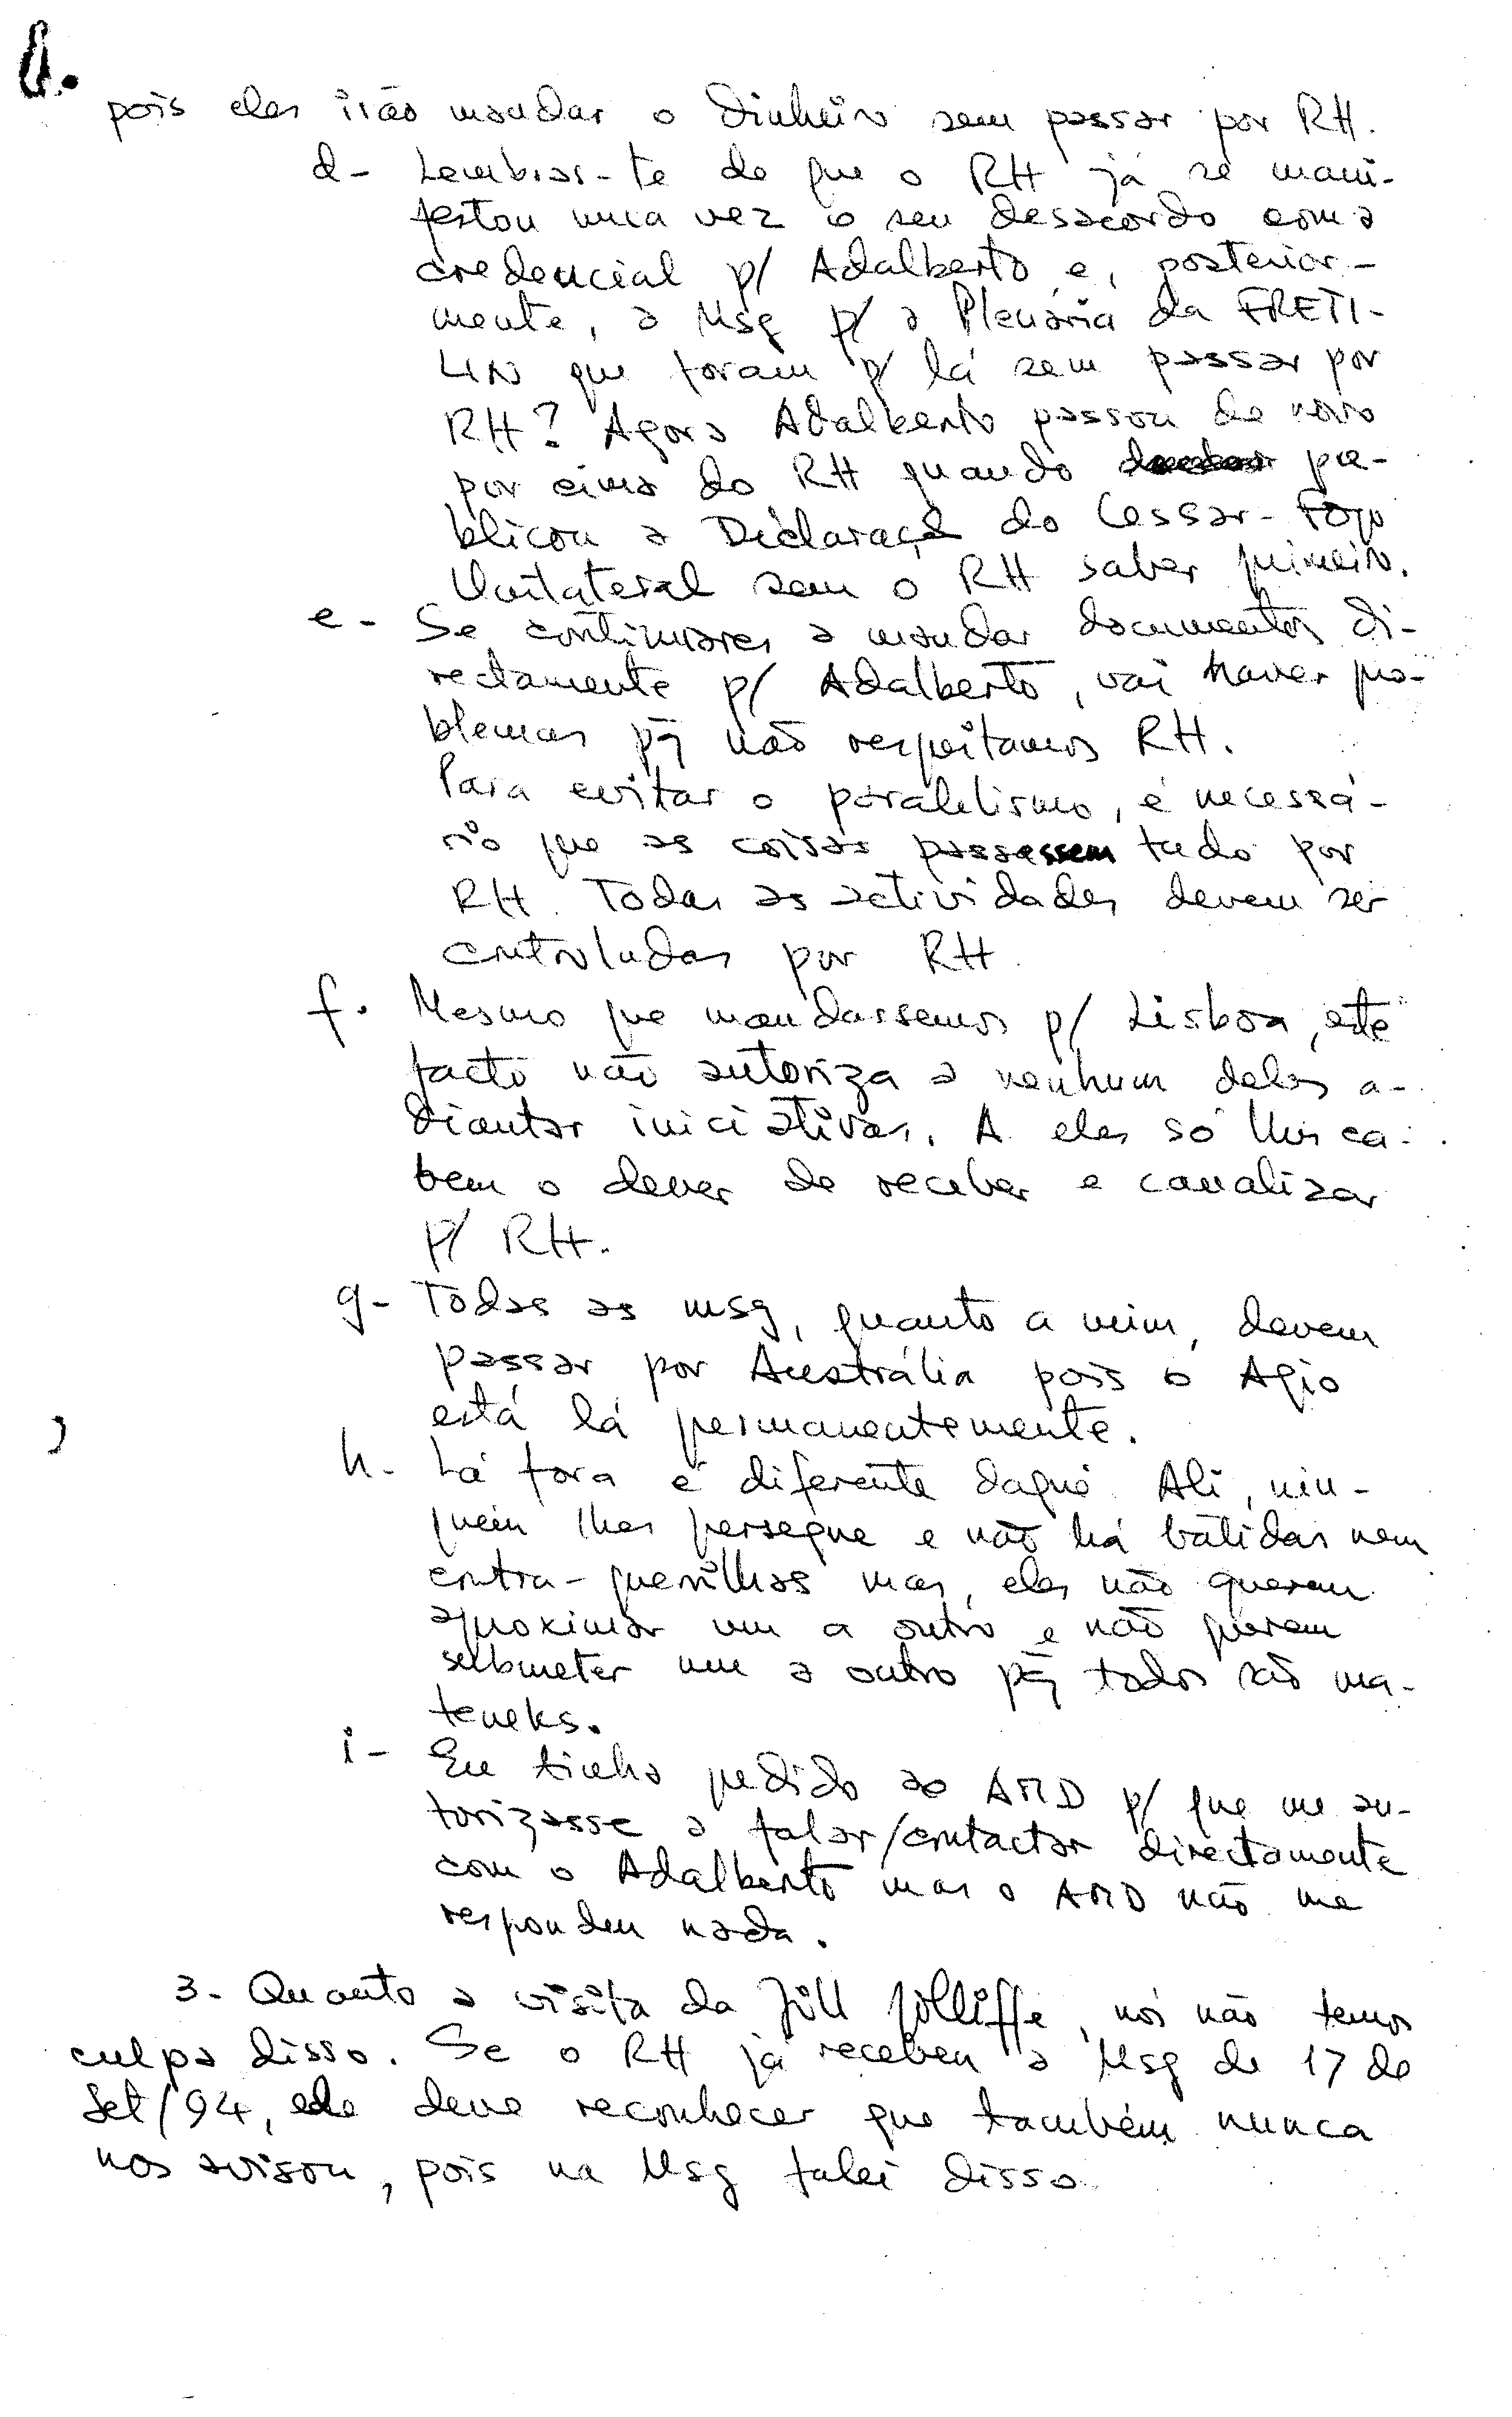 pois eles irão mandar o dinheiro sem passar por RH.
d- Lembras-te de que o RH já se mani-
festou uma vez o seu desacordo com a
credencial p/ Adalberto e, posterior-
mente, a Msg p/ a Plenária da FRETI-
LIN que foram p/ lá sem passar por
RH? Agora Adalberto passou de novo
por cima do RH quando pu-
blicou a Declaração do Cessar-Fogo
Unilateral sem o RH saber primeiro.
e- Se continuares a mandar documentos di-
rectamente p/ Adalberto, vai haver pro-
blemas pq̃ não respeitamos RH.
Para evitar o paralelismo, é necessá-
rio que as coisas passassem tudo por
RH. Todas as actividades devem ser
controladas por RH.
f. Mesmo que mandassemos p/ Lisboa, este
facto não autoriza a nenhum deles a-
diantar iniciativas. A eles só lhes ca-
bem o dever de receber e canalizar
p/ RH.
g- Todas as msg, quanto a mim, devem
passar por Austrália pois o Agio
está lá permanentemente.
h- Lá fora é diferente daqui. Ali, nin-
guém lhes persegue e não há batidas nem
contra-guerrilhas mas, eles não querem
aproximar um a outro e não querem
submeter um a outro pq̃ todos são ma-
teneks.
i- Eu tinha pedido ao AMD p/ que me au-
torizasse a falar/contactar directamente
com o Adalberto mas o AMD não me
respondeu nada.
3- Quanto a visita da Jill Jolliffe, nós não temos
culpa disso. Se o RH já recebeu a Msg de 17 de
Set/94, ele deve reconhecer que também nunca
nos avisou, pois na Msg falei disso.